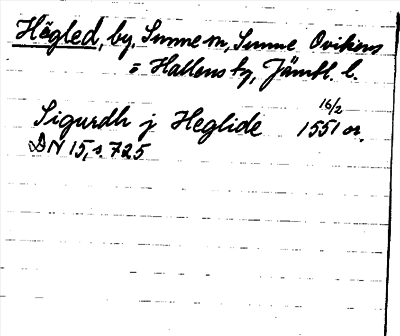 Högled, by, Sunne sn, Sunne Ovikens
= Hallens tg, Jämtl. l.
Sigurdh j Heglide 16/2 1551 or.
DN 15, s. 725